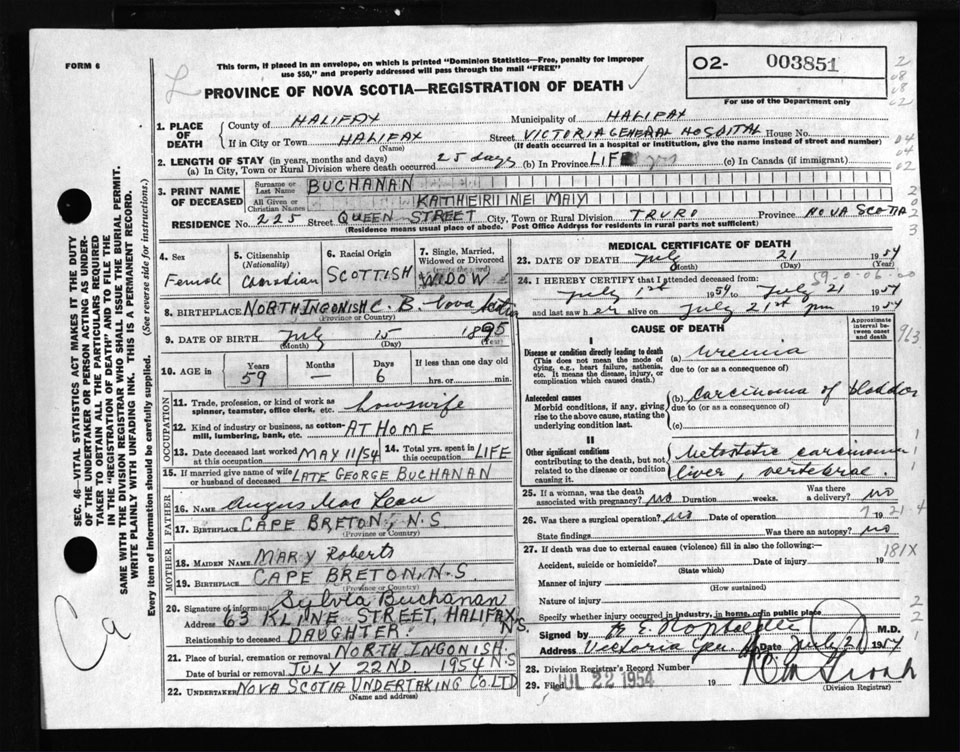 FORM 6
This form, if placed in an envelope, on which is printed "Dominion Statistics—Free, penalty for improper
use $50," and properly addressed will pass through the mail "FREE"
PROVINCE OF NOVA SCOTIA—REGISTRATION OF DEATH
02- 003851
For use of the Department only
SEC. 46—VITAL STATISTICS ACT MAKES IT THE DUTY
OF THE UNDERTAKER OR PERSON ACTING AS UNDER-
TAKER TO OBTAIN ALL THE PARTICULARS REQUIRED
IN THE "REGISTRATION OF DEATH" AND TO FILE THE
SAME WITH THE DIVISION REGISTRAR WHO SHALL ISSUE THE BURIAL PERMIT.
WRITE PLAINLY WITH UNFADING INK. THIS IS A PERMANENT RECORD.
Every item of information should be carefully supplied. (See reverse side for instructions.)
1. PLACE OF DEATH
County of HALIFAX Municipality of HALIFAX
If in City or Town HALIFAX Street VICTORIA GENERAL HOSPITAL House No.
(Name) (If death occurred in a hospital or institution, give the name instead of street and number)
2. LENGTH OF STAY (in years, months and days)
(a) In City, Town or Rural Division where death occurred 25 days (b) In Province LIFE (c) In Canada (if immigrant)
3. PRINT NAME OF DECEASED
Surname or Last Name BUCHANAN
All Given or Christian Names KATHERINE MAY
RESIDENCE No. 225 Street QUEEN STREET City, Town or Rural Division TRURO Province NOVA SCOTIA
(Residence means usual place of abode. Post Office Address for residents in rural parts not sufficient)
4. Sex Female
5. Citizenship (Nationality) Canadian
6. Racial Origin SCOTTISH
7. Single, Married, Widowed or Divorced WIDOW
8. BIRTHPLACE NORTH INGONISH C. B. Nova Scotia
(Province or Country)
9. DATE OF BIRTH July 15 1895
(Month) (Day) (Year)
10. AGE in Years 59 Months — Days 6 If less than one day old
hrs. or min.
OCCUPATION
11. Trade, profession, or kind of work as
spinner, teamster, office clerk, etc. housewife
12. Kind of industry or business, as cotton-
mill, lumbering, bank, etc. AT HOME
13. Date deceased last worked at this occupation MAY 11/54
14. Total yrs. spent in this occupation LIFE
15. If married give name of wife
or husband of deceased LATE GEORGE BUCHANAN
FATHER
16. NAME Angus MacLean
17. BIRTHPLACE CAPE BRETON, N.S
(Province or Country)
MOTHER
18. MAIDEN NAME MARY Roberts
19. BIRTHPLACE CAPE BRETON, N.S.
(Province or Country)
20. Signature of informant Sylvia Buchanan
Address 63 KLINE STREET, HALIFAX N.S.
Relationship to deceased DAUGHTER.
21. Place of burial, cremation or removal NORTH INGONISH.
Date of burial or removal JULY 22ND 1954 N.S
22. UNDERTAKER NOVA SCOTIA UNDERTAKING CO. LTD
(Name and address)
MEDICAL CERTIFICATE OF DEATH
23. DATE OF DEATH July 21 1954
Month) (Day) (Year)
24. I HEREBY CERTIFY that I attended deceased from:
July 1st 1954 to July 21 1954
and last saw her alive on July 21st pm 1954
CAUSE OF DEATH
Approximate interval between onset and death
I
Disease or condition directly leading to death (a) Uremia
(This does not mean the mode of dying, e.g., heart failure, asthenia, etc. It means the disease, injury, or complication which caused death.)
due to (or as a consequence of)
Antecedent causes
Morbid conditions, if any, giving rise to the above cause, stating the underlying condition last.
(b) Carcinoma of bladder
due to (or as a consequence of)
(c)
II
Other significant conditions
contributing to the death, but not related to the disease or condition causing it.
Metastatic carcinoma
liver, vertebrae.
25. If a woman, was the death
associated with pregnancy? no Duration weeks. Was there a delivery? no
26. Was there a surgical operation? no Date of operation
State findings Was there an autopsy? no
27. If death was due to external causes (violence) fill in also the following:—
Accident, suicide or homicide? Date of injury 19
(State which)
Manner of injury
(How sustained)
Nature of injury
Specify whether injury occurred in industry, in home, or in public place
Signed by M.D.
Address Victoria Gen. Date July 21 1954
28. Division Registrar's Record Number
29. Filed JUL 22 1954 19
(Division Registrar)
963
181X